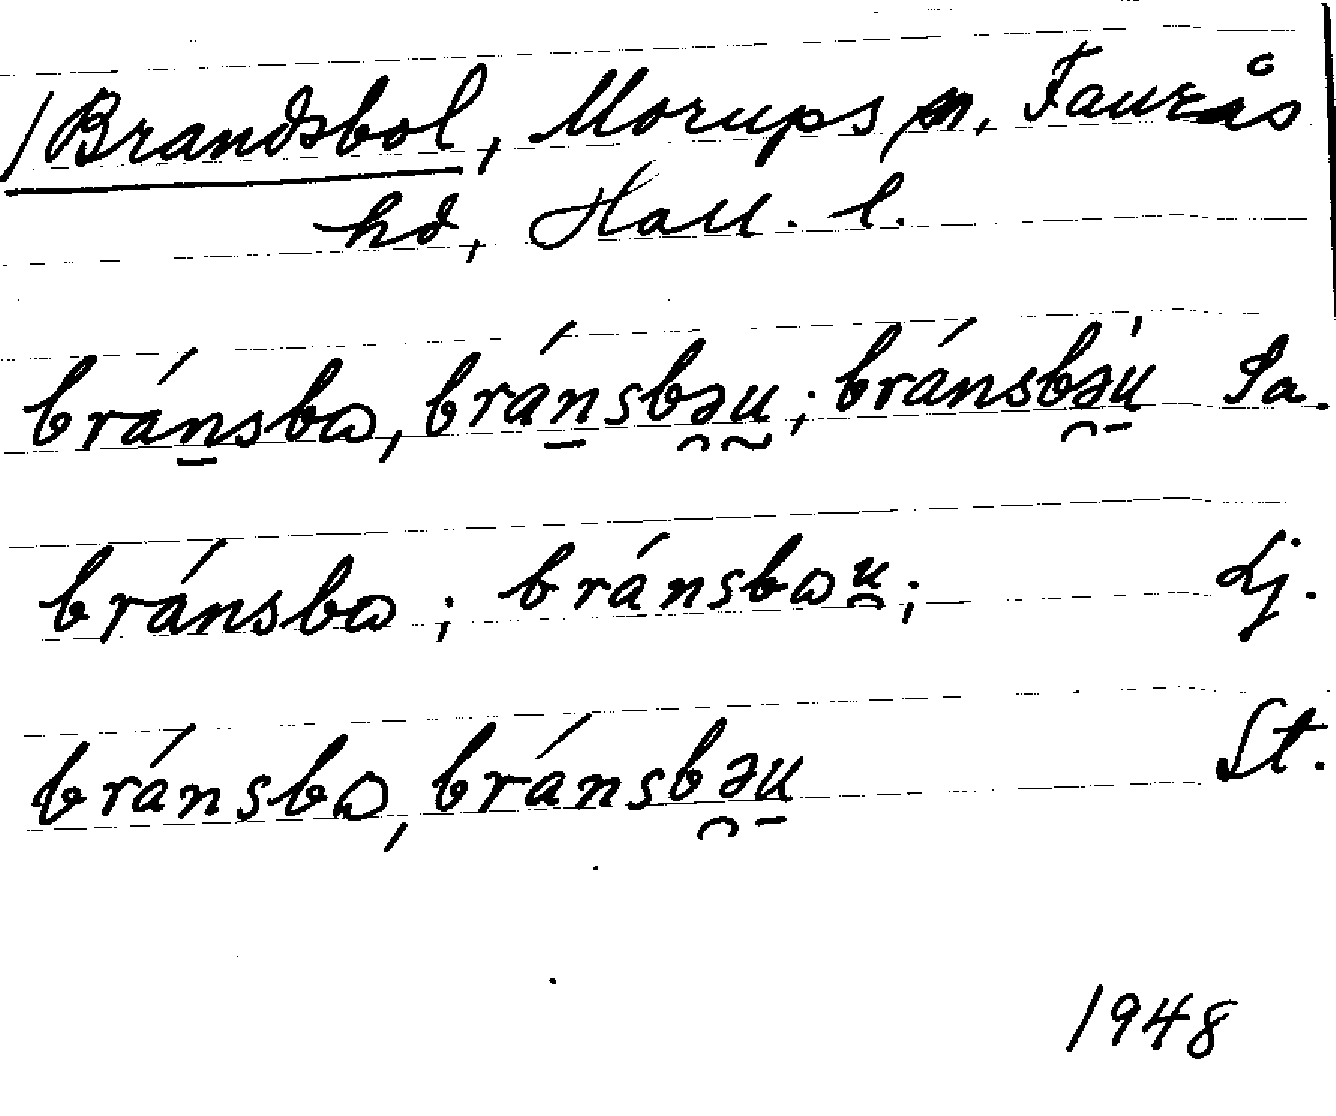 /Brandsbol, Morups sn, Faurås
hd, Hall. l.
bránsbɷ, bránsbəu; bránsbəu̍ Sa.
bránsbɷ; bránsbɷu; Lj.
bránsbɷ, bránsbəu St.
1948